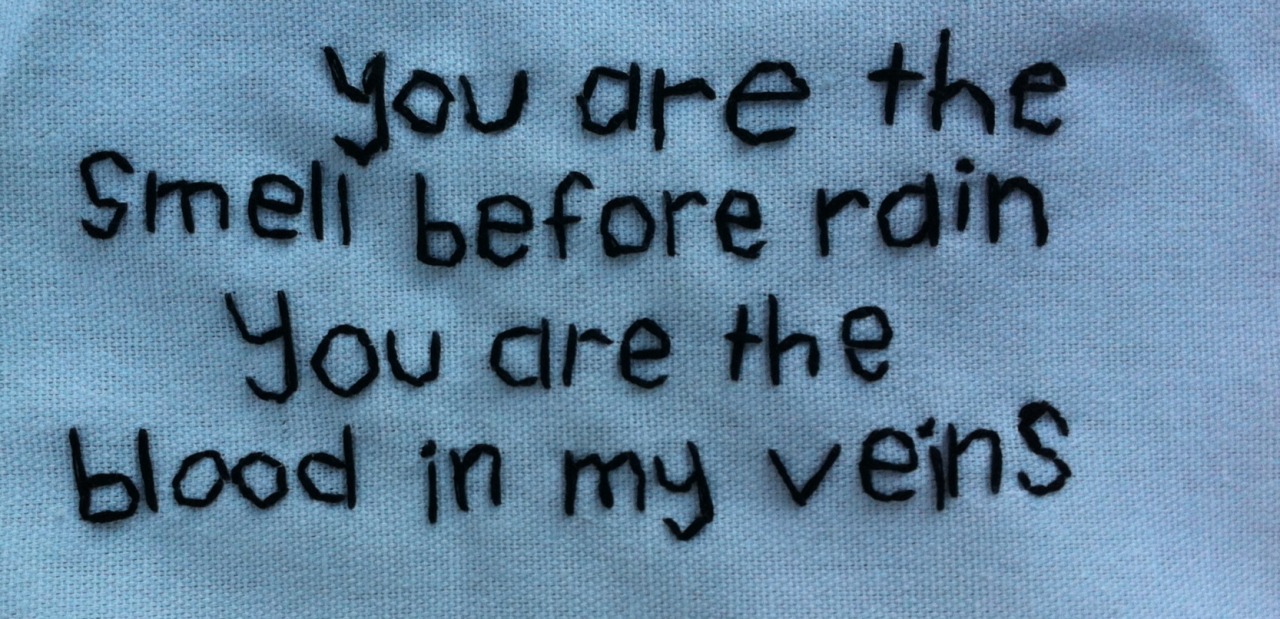 you are the
smell before rain
you are the
blood in my veins